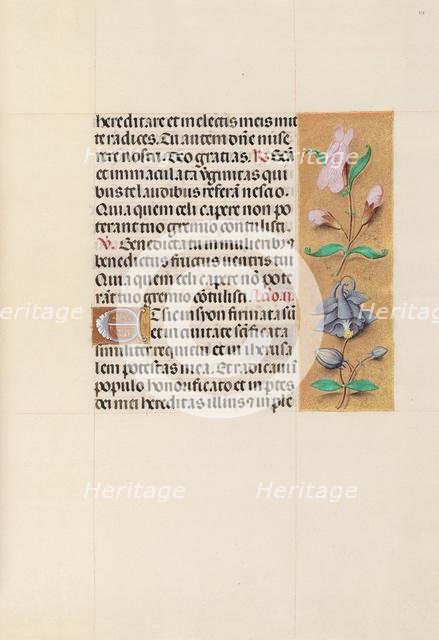 hereditare et in electis meis mit
te radices. Tu autem dñe mise
rere nostri. Deo gratias. R. Scã
et immaculata virginitas qui
bus te laudibus referã nescio.
Quia quem celi capere non po
terant tuo gremio contulisti.
V. Benedicta tu in mulieribus
benedictus fructus ventris tui
Quia quem celi capere nõ pote
rãt tuo gremio cõtulisti. Lcõ.ii.
Et sic in syon firmata sũ
et in civitate scĩficata
similiter requievi et in iherusa
lem potestas mea. Et radicavi ĩ
populo honorificato et in ptes
dei mei hereditas illius ⁊ in ple
Heritage
Heritage
Heritage
Heritage
Heritage
Heritage